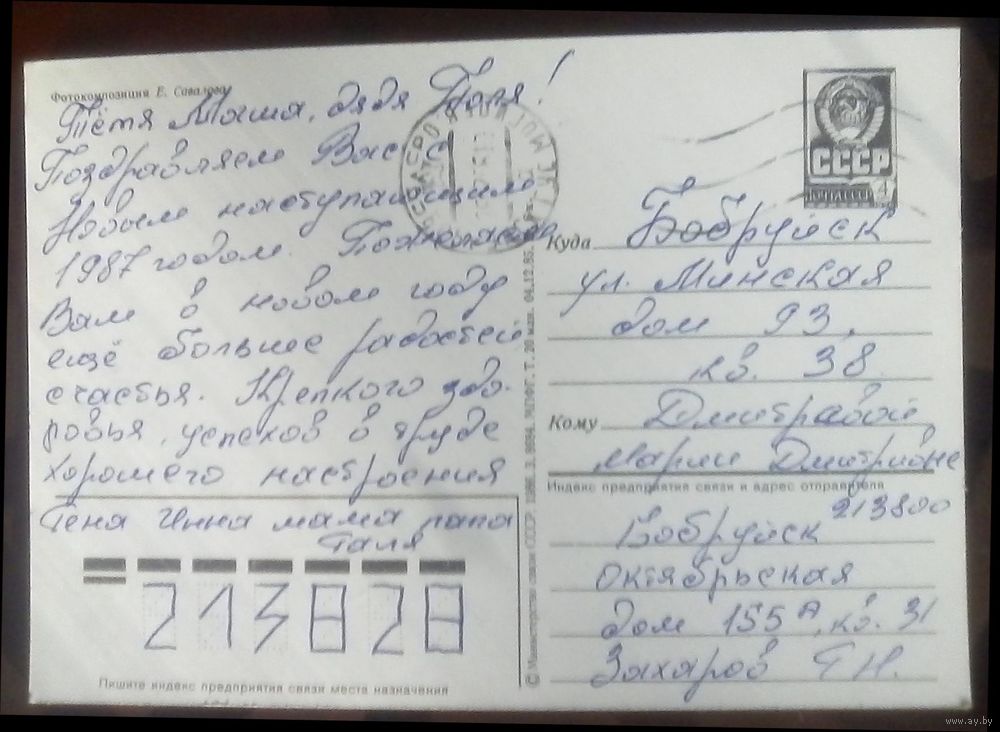 Фотокомпозиция Е. Савалова
Тётя Маша, дядя Толя!
Поздравляем Вас с
Новым наступающим
1987 годом. Пожелаем
Вам в новом году
ещё больше радостей
счастья. Крепкого здо-
ровья, успехов в труде
хорошего настроения
Гена Инна мама папа
Галя
213828
Пишите индекс предприятия связи места назначения
© Министерство связи СССР. 1986. З. 8094. МПФГ. Т. 20 млн. 04.12.85.
СССР
4
Куда Бобруйск
ул. Минская
дом 93,
кв. 38
Кому Дмитравой
Марии Дмитриевне
Индекс предприятия связи и адрес отправителя
213800
Бобруйск
Октябрьская
дом 155 А, кв. 31
Захаров ГН.
www.ay.by